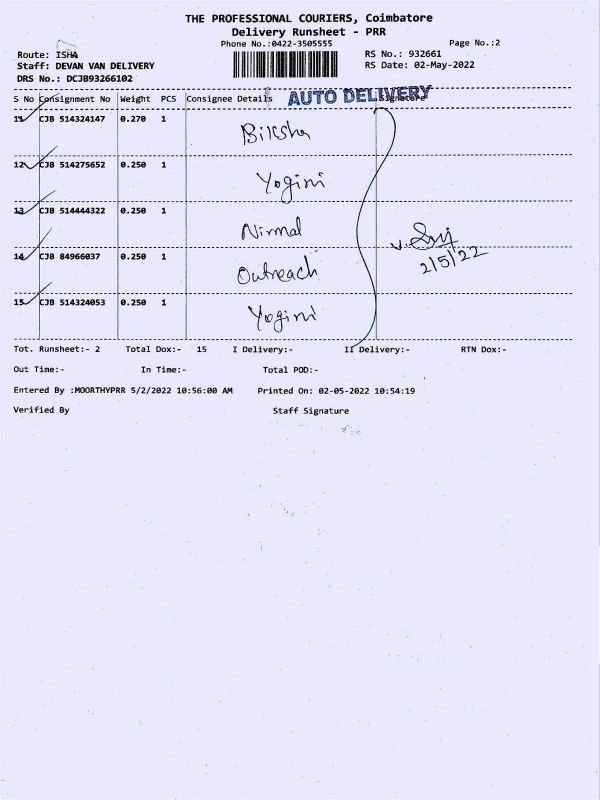 THE PROFESSIONAL COURIERS, Coimbatore
Delivery Runsheet - PRR
Phone No.:0422-3505555
Page No.:2
Route: ISHA
RS No.: 932661
Staff: DEVAN VAN DELIVERY
RS Date: 02-May-2022
DRS No.: DCJB93266102
S No Consignment No Weight PCS Consignee Details AUTO DELIVERY Signature
11 CJB 514324147 0.270 1 Biksha
12 CJB 514275652 0.250 1 Yogini
13 CJB 514444322 0.250 1 Nirmal
14 CJB 84966037 0.250 1 Outreach
2/5/22
15 CJB 514324053 0.250 1 Yogini
Tot. Runsheet:- 2 Total Dox:- 15 I Delivery:- II Delivery:- RTN Dox:-
Out Time:- In Time:- Total POD:-
Entered By :MOORTHYPRR 5/2/2022 10:56:00 AM Printed On: 02-05-2022 10:54:19
Verified By Staff Signature